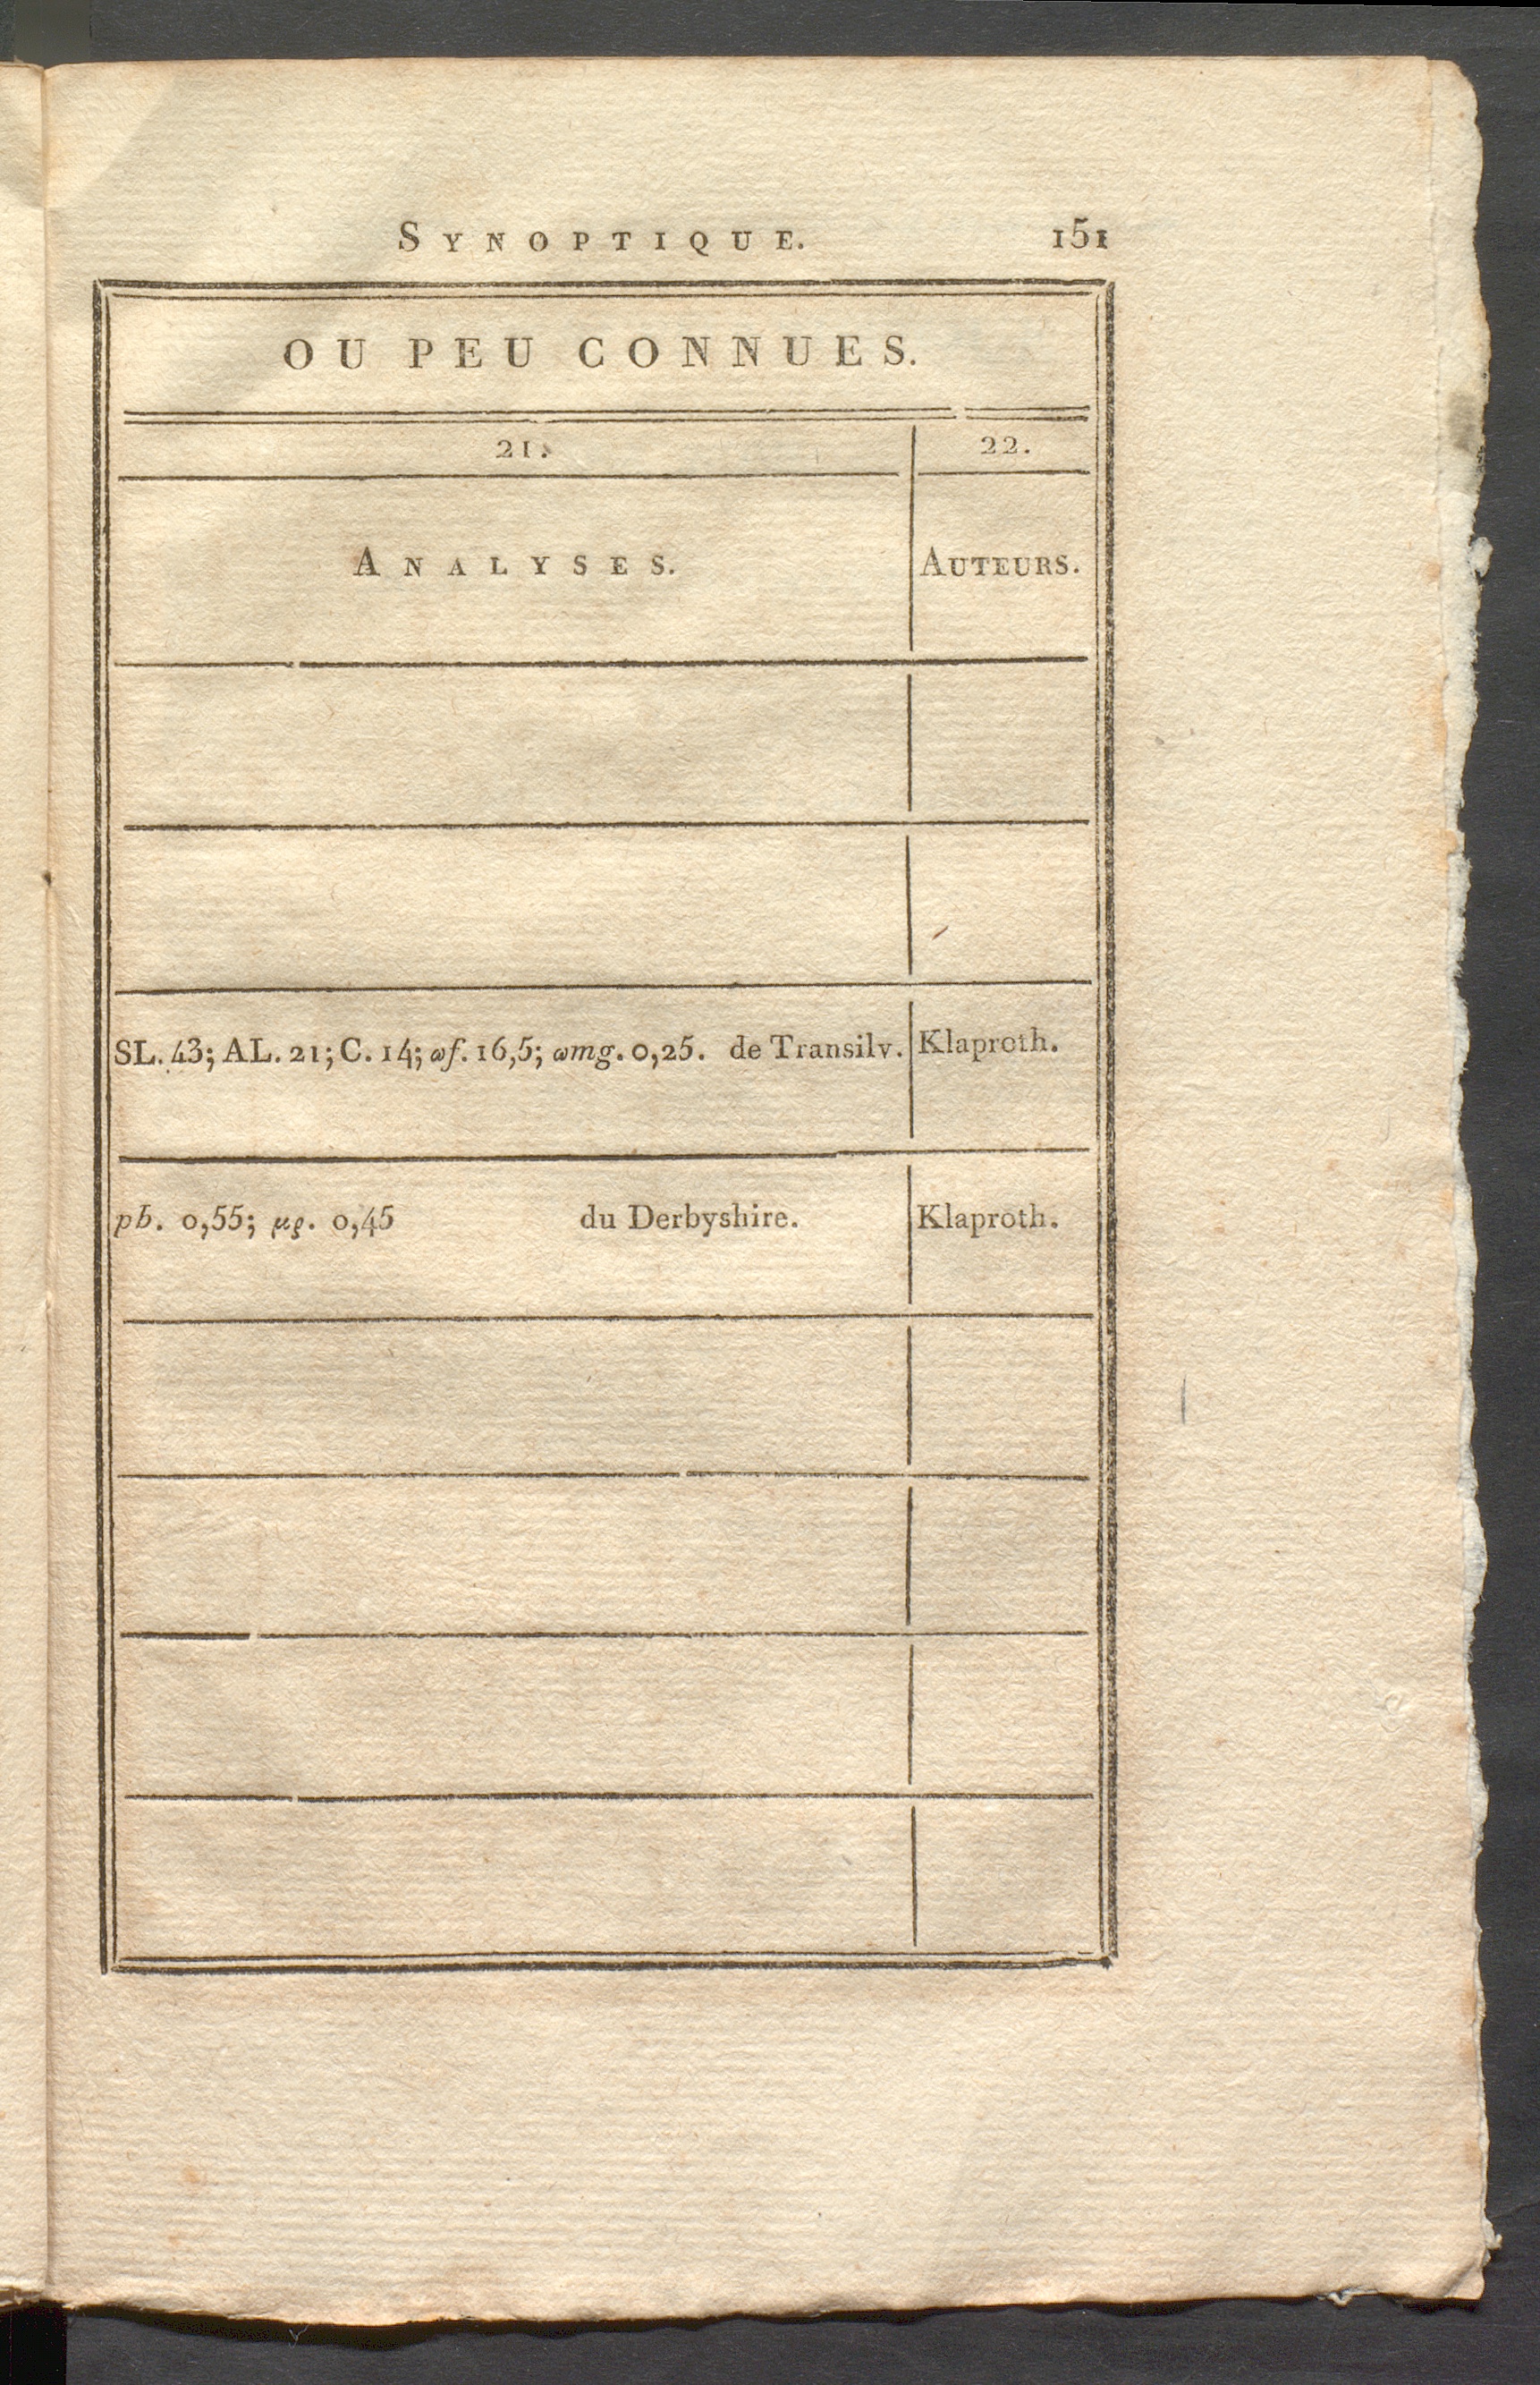 SYNOPTIQUE. 151
OU PEU CONNUES.
21. 22.
ANALYSES. AUTEURS.
SL. 43; AL. 21; C. 14; ωf. 16,5; ωmg. 0,25. de Transilv. Klaproth.
pb. 0,55; μς. 0,45 du Derbyshire. Klaproth.